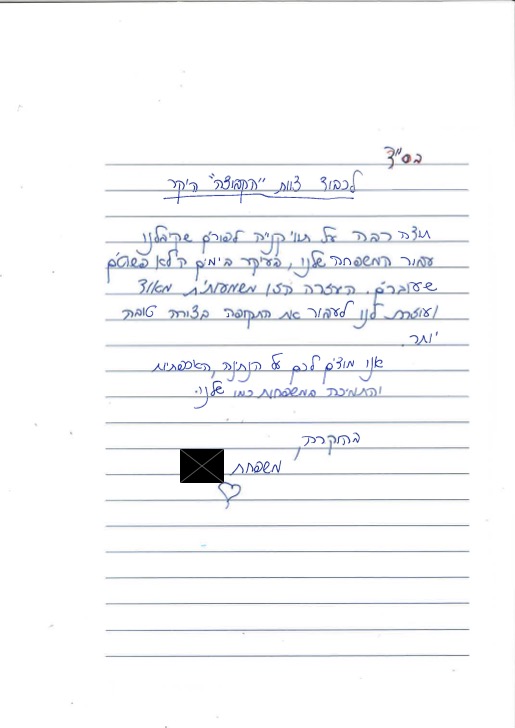 בס"ד
לכבוד צוות "הקבוצה" היקר
תודה רבה על תווי קנייה לפורים שקיבלנו
עבור המשפחה שלנו, בעיקר בימים הלא פשוטים
שעוברים. העזרה הזו משמעותית מאוד
ועוזרת לנו לעבור את התקופה בצורה טובה
יותר.
אנו מודים לכם על הנתינה, האכפתיות
והתמיכה במשפחות כמו שלנו.
בהוקרה,
משפחת